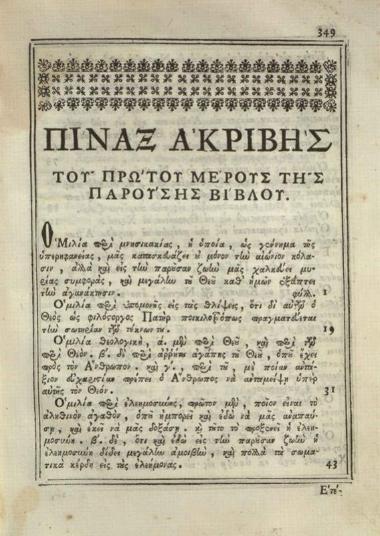 349
ΠΙΝΑΞ ΑʼΚΡΙΒΗʼΣ
ΤΟΥ͂ ΠΡΩʼΤΟΥ ΜΕʼΡΟΥΣ ΤΗ͂Σ
ΠΑΡΟΥʼΣΗΣ ΒΙʼΒΛΟΥ.
Ὁμιλία περὶ μνησικακίας, ἡ ὁποία, ὡς γέννημα τῆς
ὑπερηφανείας, μᾶς κατασκευάζει ἢ μόνον τὴν αἰώνιον κόλα-
σιν, ἀλλὰ καὶ εἰς τὴν παροῦσαν ζωὴν μᾶς χαλκεύει μυ-
ρίας συμφορὰς, καὶ μεγάλην τοῦ Θεοῦ καθ' ἡμῶν ἐξάπτει
τὴν ἀγανάκτησιν. φύλ. 1
Ὁμιλία περὶ ὑπομονῆς εἰς τὰς θλίψεις, ὅτι δι' αὐτῶν ὁ
Θεὸς ὡς φιλόστοργος Πατὴρ ποικιλοτρόπως πραγματεύεται
τὴν σωτηρίαν τῶν τέκνων του. 19
Ὁμιλία θεολογικὴ, ά. μὲν περὶ Θεοῦ, καὶ περὶ τῶν
περὶ Θεὸν. β. δὲ περὶ ἀρρήτου ἀγάπης τοῦ Θεοῦ, ὁποῦ ἔχει
πρὸς τὸν Ἄνθρωπον. καὶ γ., περὶ τοῦ, μὲ ποίαν ἀντά-
ξιον εὐχαριστίαν πρέπει ὁ Ἄνθρωπος νὰ ἀνταμείψῃ ὑπὲρ
αὐτῆς τὸν Θεόν. 31
Ὁμιλία περὶ ἐλεημοσύνης, πρῶτον μὲν, ποῖον εἶναι τὸ
ἀληθινὸν ἀγαθὸν, ὁποῦ ἠμπορεῖ καὶ ἐδῶ νὰ μᾶς ἀναπαύ-
σῃ, καὶ ἐκεῖ νὰ μᾶς δοξάσῃ. κ̀ τοῦτο τὸ προξενεῖ ἡ ἐλεη-
μοσύνη. β. δὲ, ὅτι καὶ ἐδῶ εἰς τὴν παροῦσαν ζωὴν ἡ
ἐλεημοσύνη δίδει μεγάλην ἀμοιβὴν, καὶ πολλὰ τὰ σωμα-
τικὰ κέρδη εἰς τοὺς ἐλεήμονας. 43
Ἐπί-